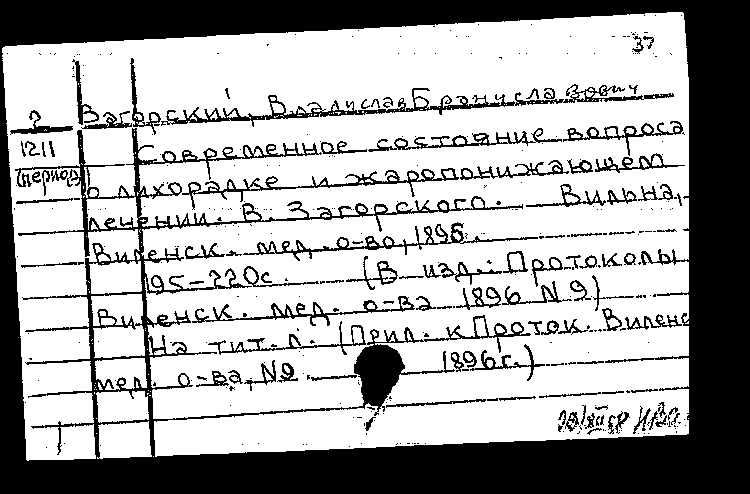 37
? Загорский, Владислав Брониславович
1211 Современное состояние вопроса
(период) о лихорадке и жаропонижающем
лечении. В. Загорского. Вильна,
Виленск. мед. о-во, 1896.
195-220с. (В изд.: Протоколы
Виленск. мед. о-ва 1896 N 9)
На тит. л. (Прил. к Проток. Виленс
мед. о-ва, N9. 1896г.)